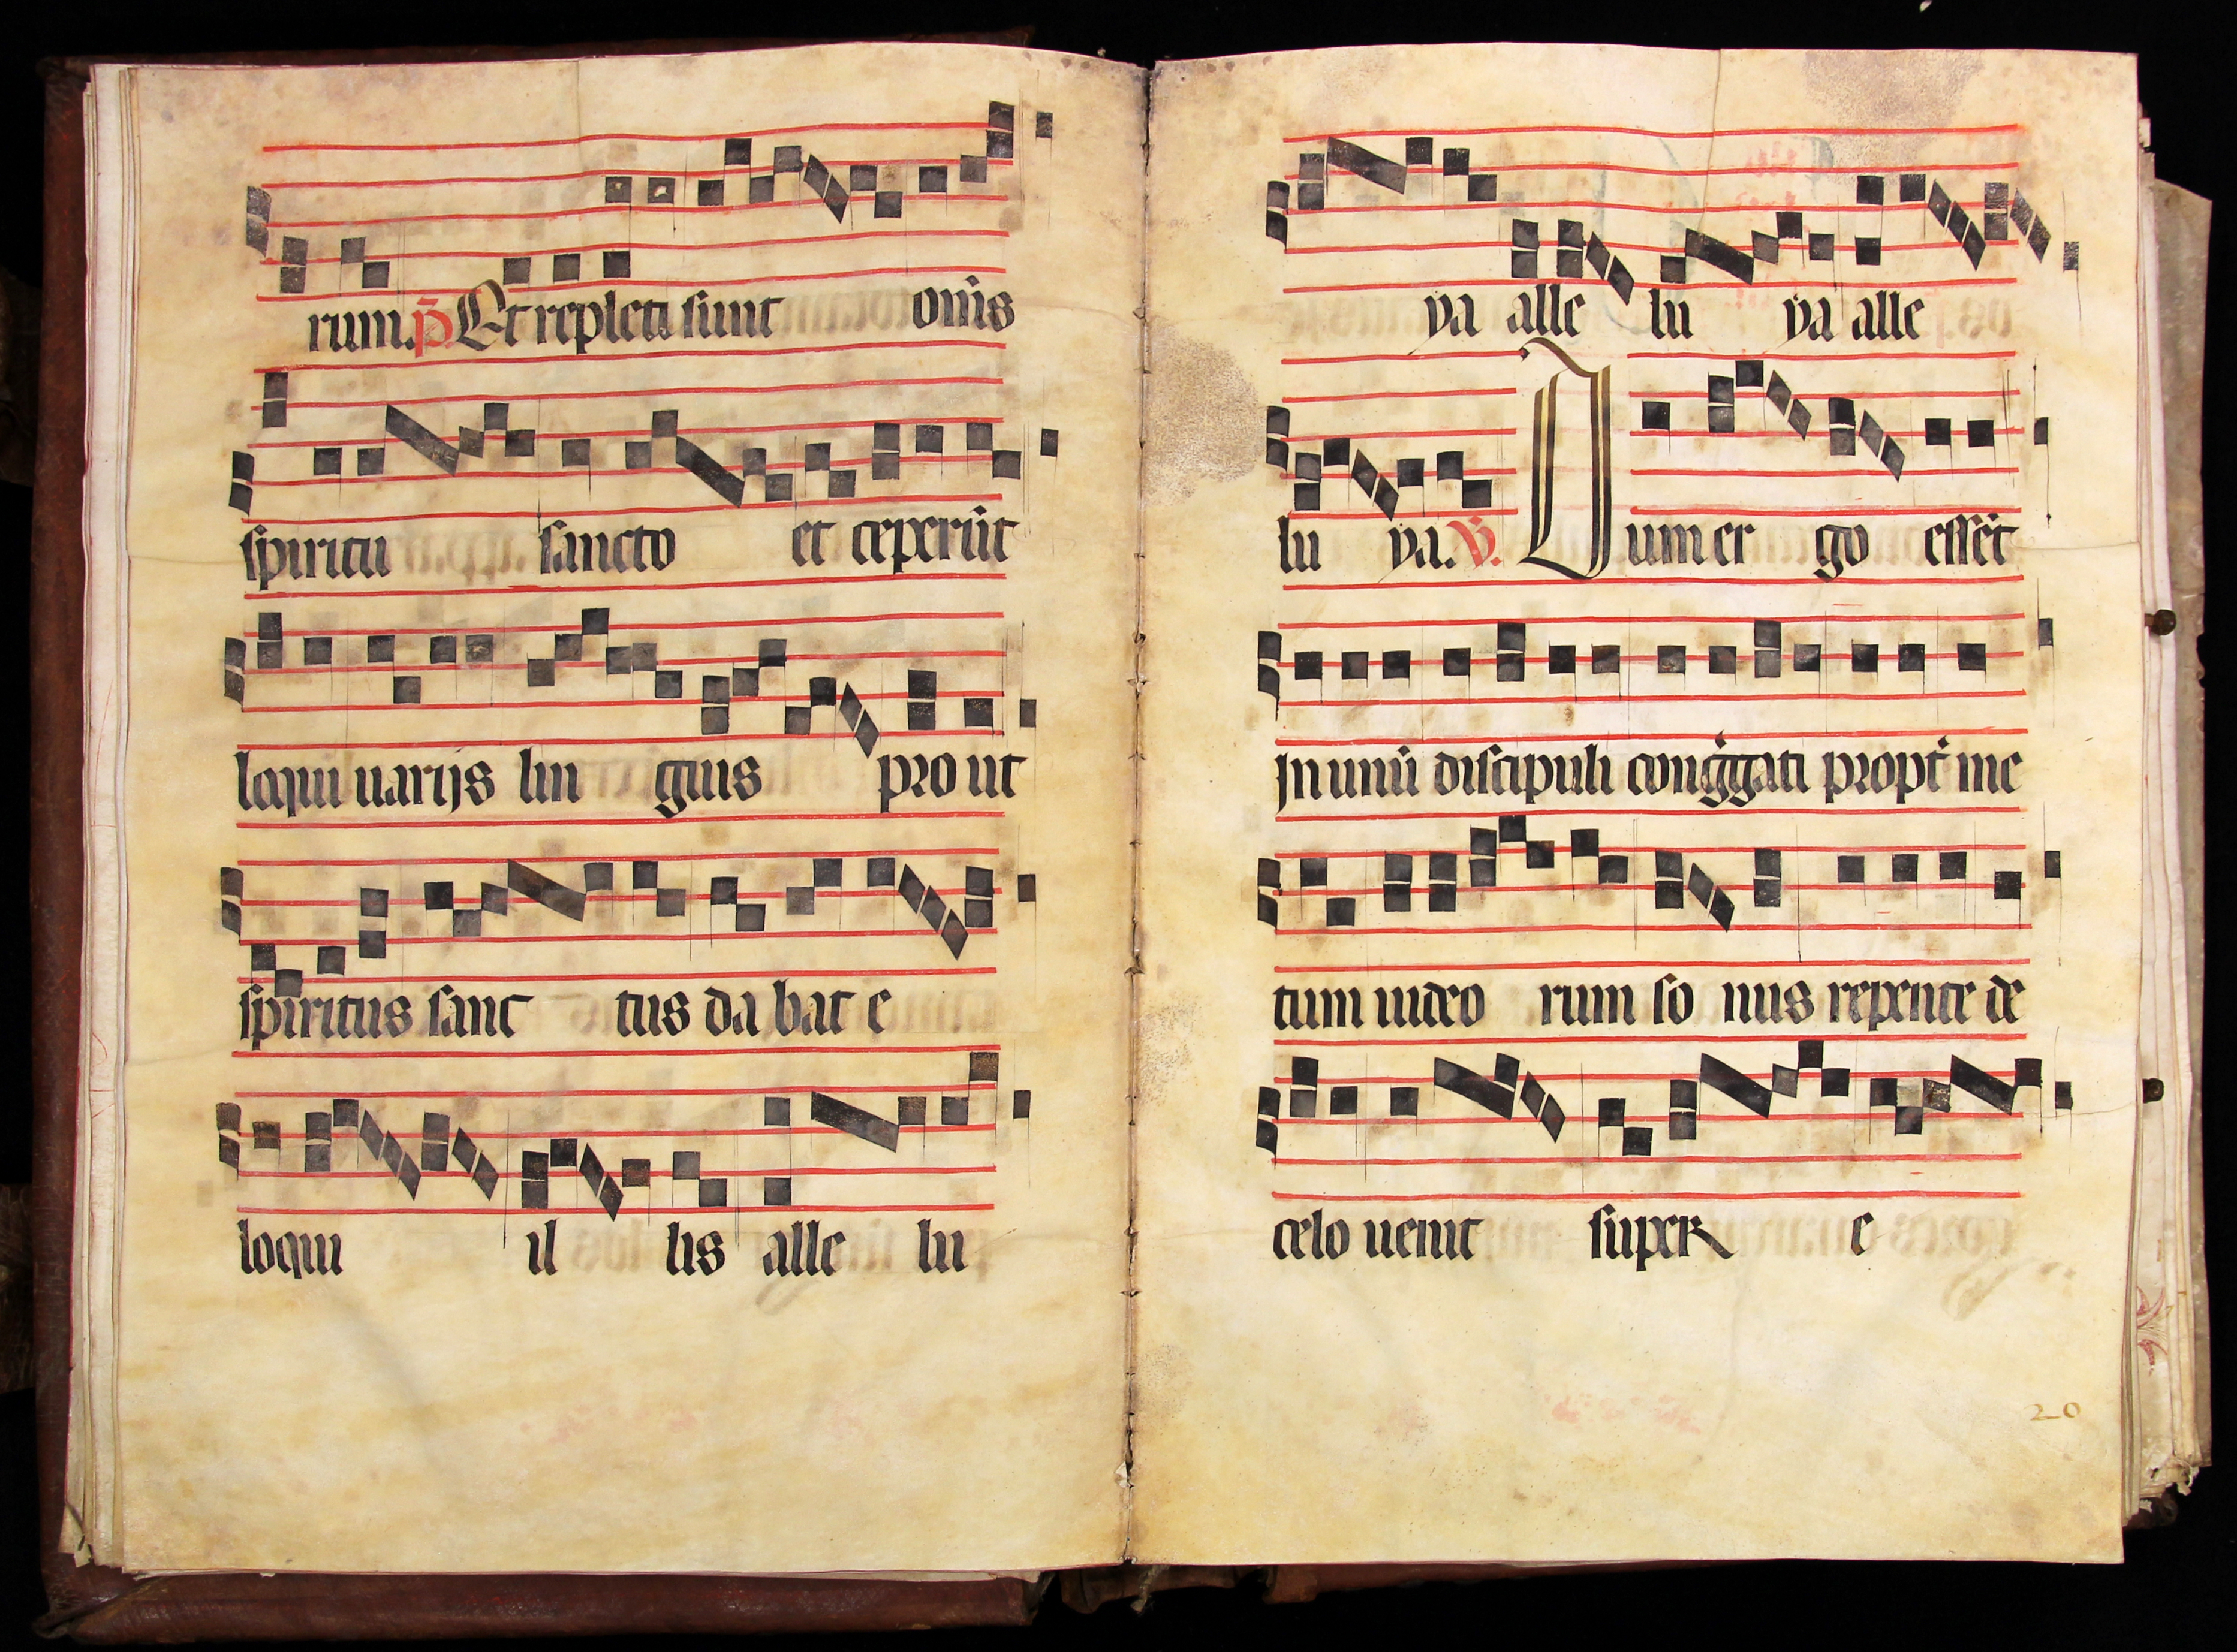 rum. p̄. Et repleti sunt om̄s
spiritu sancto et ceperūt
loqui uarijs lin guis pro ut
spiritus sanc tus da bat e
loqui il lis alle lu
ya alle lu ya alle
lu ya. v̄. Dum er go essēt
in unū discipuli cong̍gati propt̍ me
tum iudeo rum so nus repente de
celo uenit super e
20